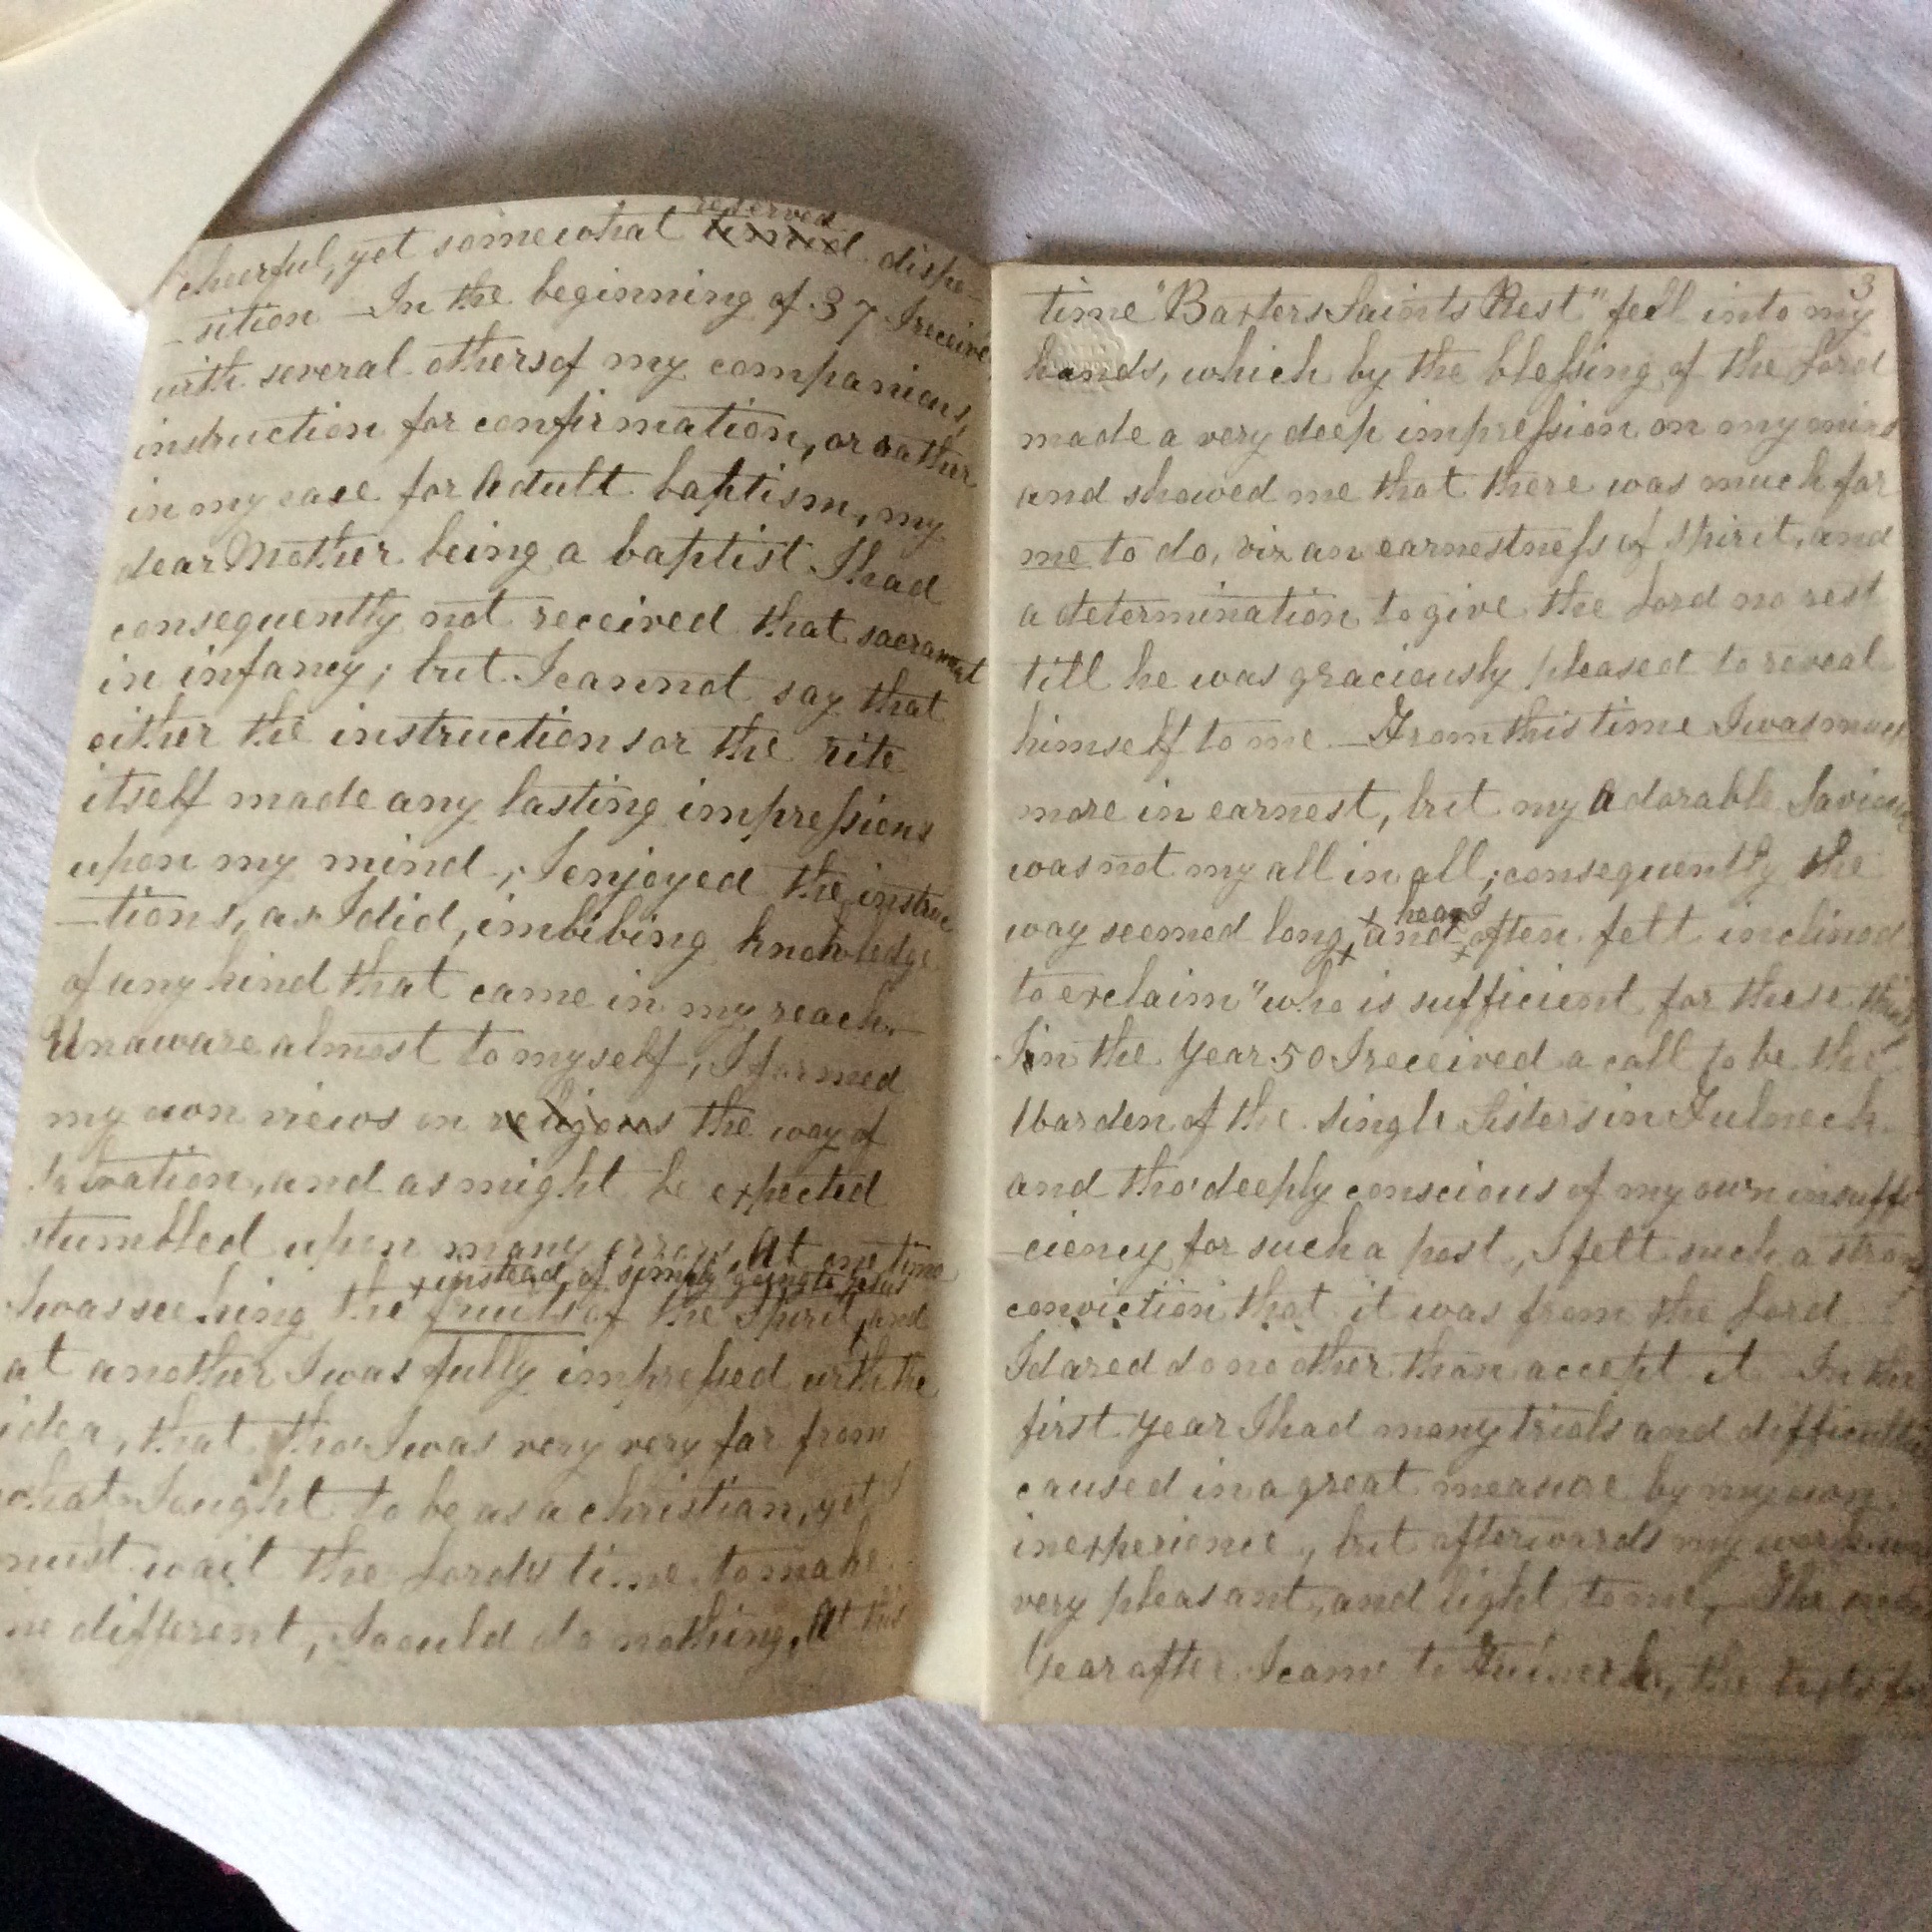 cheerful, yet somewhat reserved dispo-
-sition - In the beginning of 37 I receive
with several others of my companions,
instruction for confirmation, or rather
in my case for Adult baptism, my
dear Mother being a baptist I had
consequently not received that sacrament
in infancy; but I cannot say that
either the instructions or the rite
itself made any lasting impressions
upon my mind; I enjoyed the instruc
-tions, as I did, imbibing knowledge
of any kind that came in my reach.-
Unaware almost to myself, I formed
my own views on religious the way of
salvation, and as might be expected
stumbled upon many errors, At one time
+ instead of simply going to Jesus
I was seeking the fruits of the Spirit, and
at another I was fully impressed with the
idea, that tho' I was very very far from
what I ought to be as a christian, yet I
must wait the Lord's time to make
me different, I could do nothing, At this
3
time "Baxters Saints Rest" fell into my
hands, which by the blessing of the Lord
made a very deep impression on my mind
and showed me that there was much for
me to do, viz an earnestness of spirit, and
a determination to give the Lord no rest
till he was graciously pleased to reveal
himself to me - From this time I was much
more in earnest, but my Adorable Saviour
was not my all in all; consequently the
way seemed long, and + hard + often felt inclined
to exclaim "who is sufficient for these things
In the Year 50 I received a call to be the
Warden of the Single Sisters in Fulneck
and tho' deeply conscious of my own insuffi
-ciency for such a post, I felt such a strong
conviction that it was from the Lord
I dared do no other than accept it In the
first Year I had many trials and difficulties
caused in a great measure by my own
inexperience, but afterwards my work was
very pleasant, and light to me, - The
Year after I came to Fulneck, the texts for